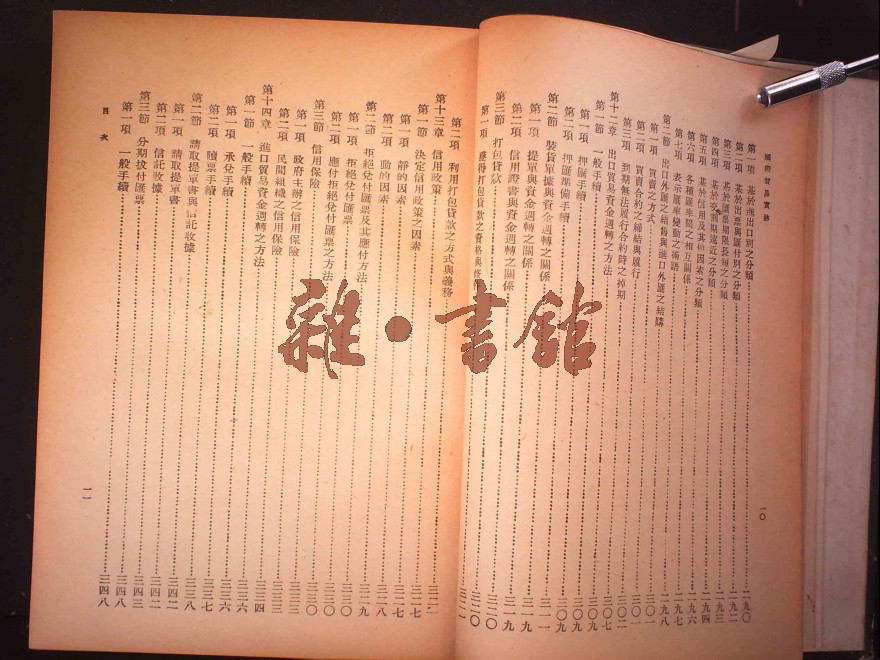 國際貿易實務
第一項 基於進出口別之分類 二九〇
第二項 基於出票與匯付別之分類 二九二
第三項 基於匯票期限長短之分類 二九三
第四項 基於 期遠近之分類 二九四
第五項 基於信用及其他因素之分類 二九六
第六項 各種匯率間之相互關係 二九七
第七項 表示匯率變動之術語 二九八
第二節 出口外匯之結售與進口外匯之結購
第一項 買賣之方式 三〇一
第二項 買賣合約之締結與履行
第三項 到期無法履行合約時之掉期 三〇二
第十二章 出口貿易資金週轉之方法
第一節 一般手續 三〇九
第一項 押匯手續 三〇九
第二項 押匯準備手續 三〇九
第二節 裝貨單據與資金週轉之關係 三一一
第一項 提單與資金週轉之關係
第二項 信用證書與資金週轉之關係 三一九
第三節 打包貸款 三二〇
第一項 獲得打包貸款之資格與條件
一〇
第二項 利用打包貸款之方式與義務
第十三章 信用政策
第一節 決定信用政策之因素 三二七
第一項 靜的因素 三二七
第二項 動的因素 三二八
第二節 拒絕兌付匯票及其應付方法 三二九
第一項 拒絕兌付匯票 三三〇
第二項 應付拒絕兌付匯票之方法 三三〇
第三節 信用保險 三三〇
第一項 政府主辦之信用保險 三三三
第二項 民間組織之信用保險 三三三
第十四章 進口貿易資金週轉之方法 三三四
第一節 一般手續 三三六
第一項 承兌手續 三三六
第二項 贖票手續 三三七
第二節 請取提單書與信託收據 三三八
第一項 請取提單書 三四二
第二項 信託收據 三四二
第三節 分期拔付匯票 三四三
第一項 一般手續 三四八
目次
一一
雜·書館